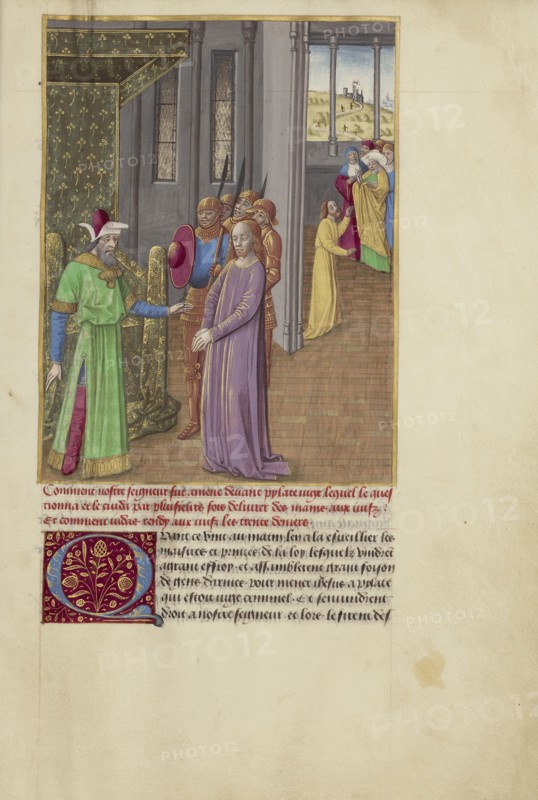 Comment nostre seigneur fut amene devant pylate iuge lequel le ques
tionna et le cuida par plusieurs fois delivrer des mains aux iuifz :
Et comment iudas rendy aux iuifz les trente deniers
Quant ce vint au matin len ala esveillier les
maistres et princes de la loy lesquelz vindrent
a grant effroy et assemblerent grant foyson
de gens darmes pour mener ihesus a pylate
qui estoit iuge criminel. Et sen vindrent
droit a nostre seigneur et lors le firent des
PHOTO12